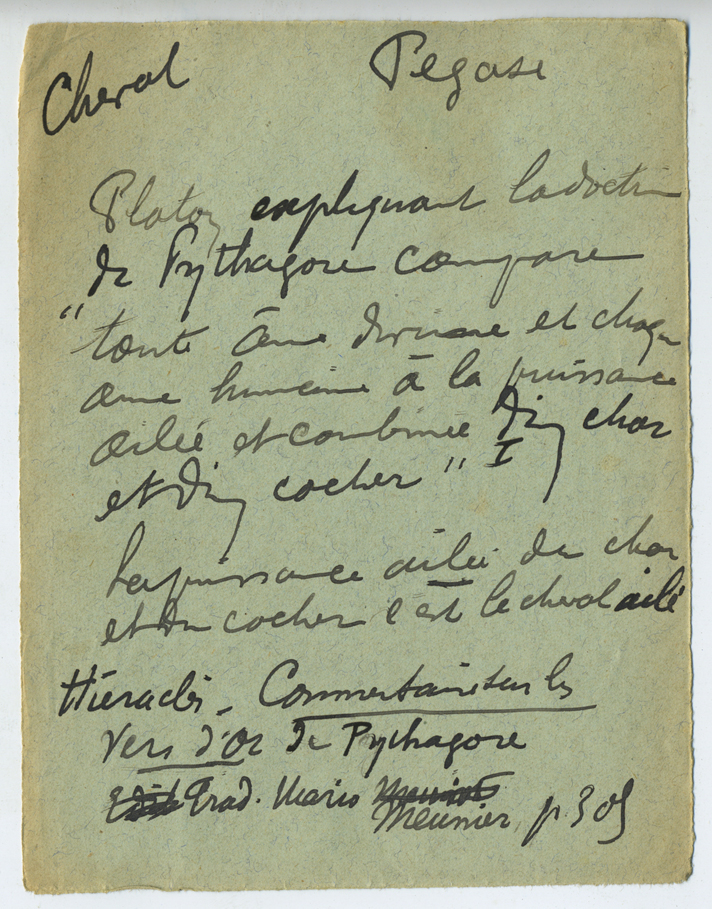 Cheval Pegase
Platon expliquant la doctrine
de Pythagore compare
"toute âme divine et chaque
âme humaine à la puissance
ailée et combinée d'un char
et d'un cocher" I
La puissance ailée du char
et du cocher c'est le cheval ailé
Hiéroclès - Commentaire sur les
Vers d'Or de Pythagore
Trad. Mario
Meunier, p. 305